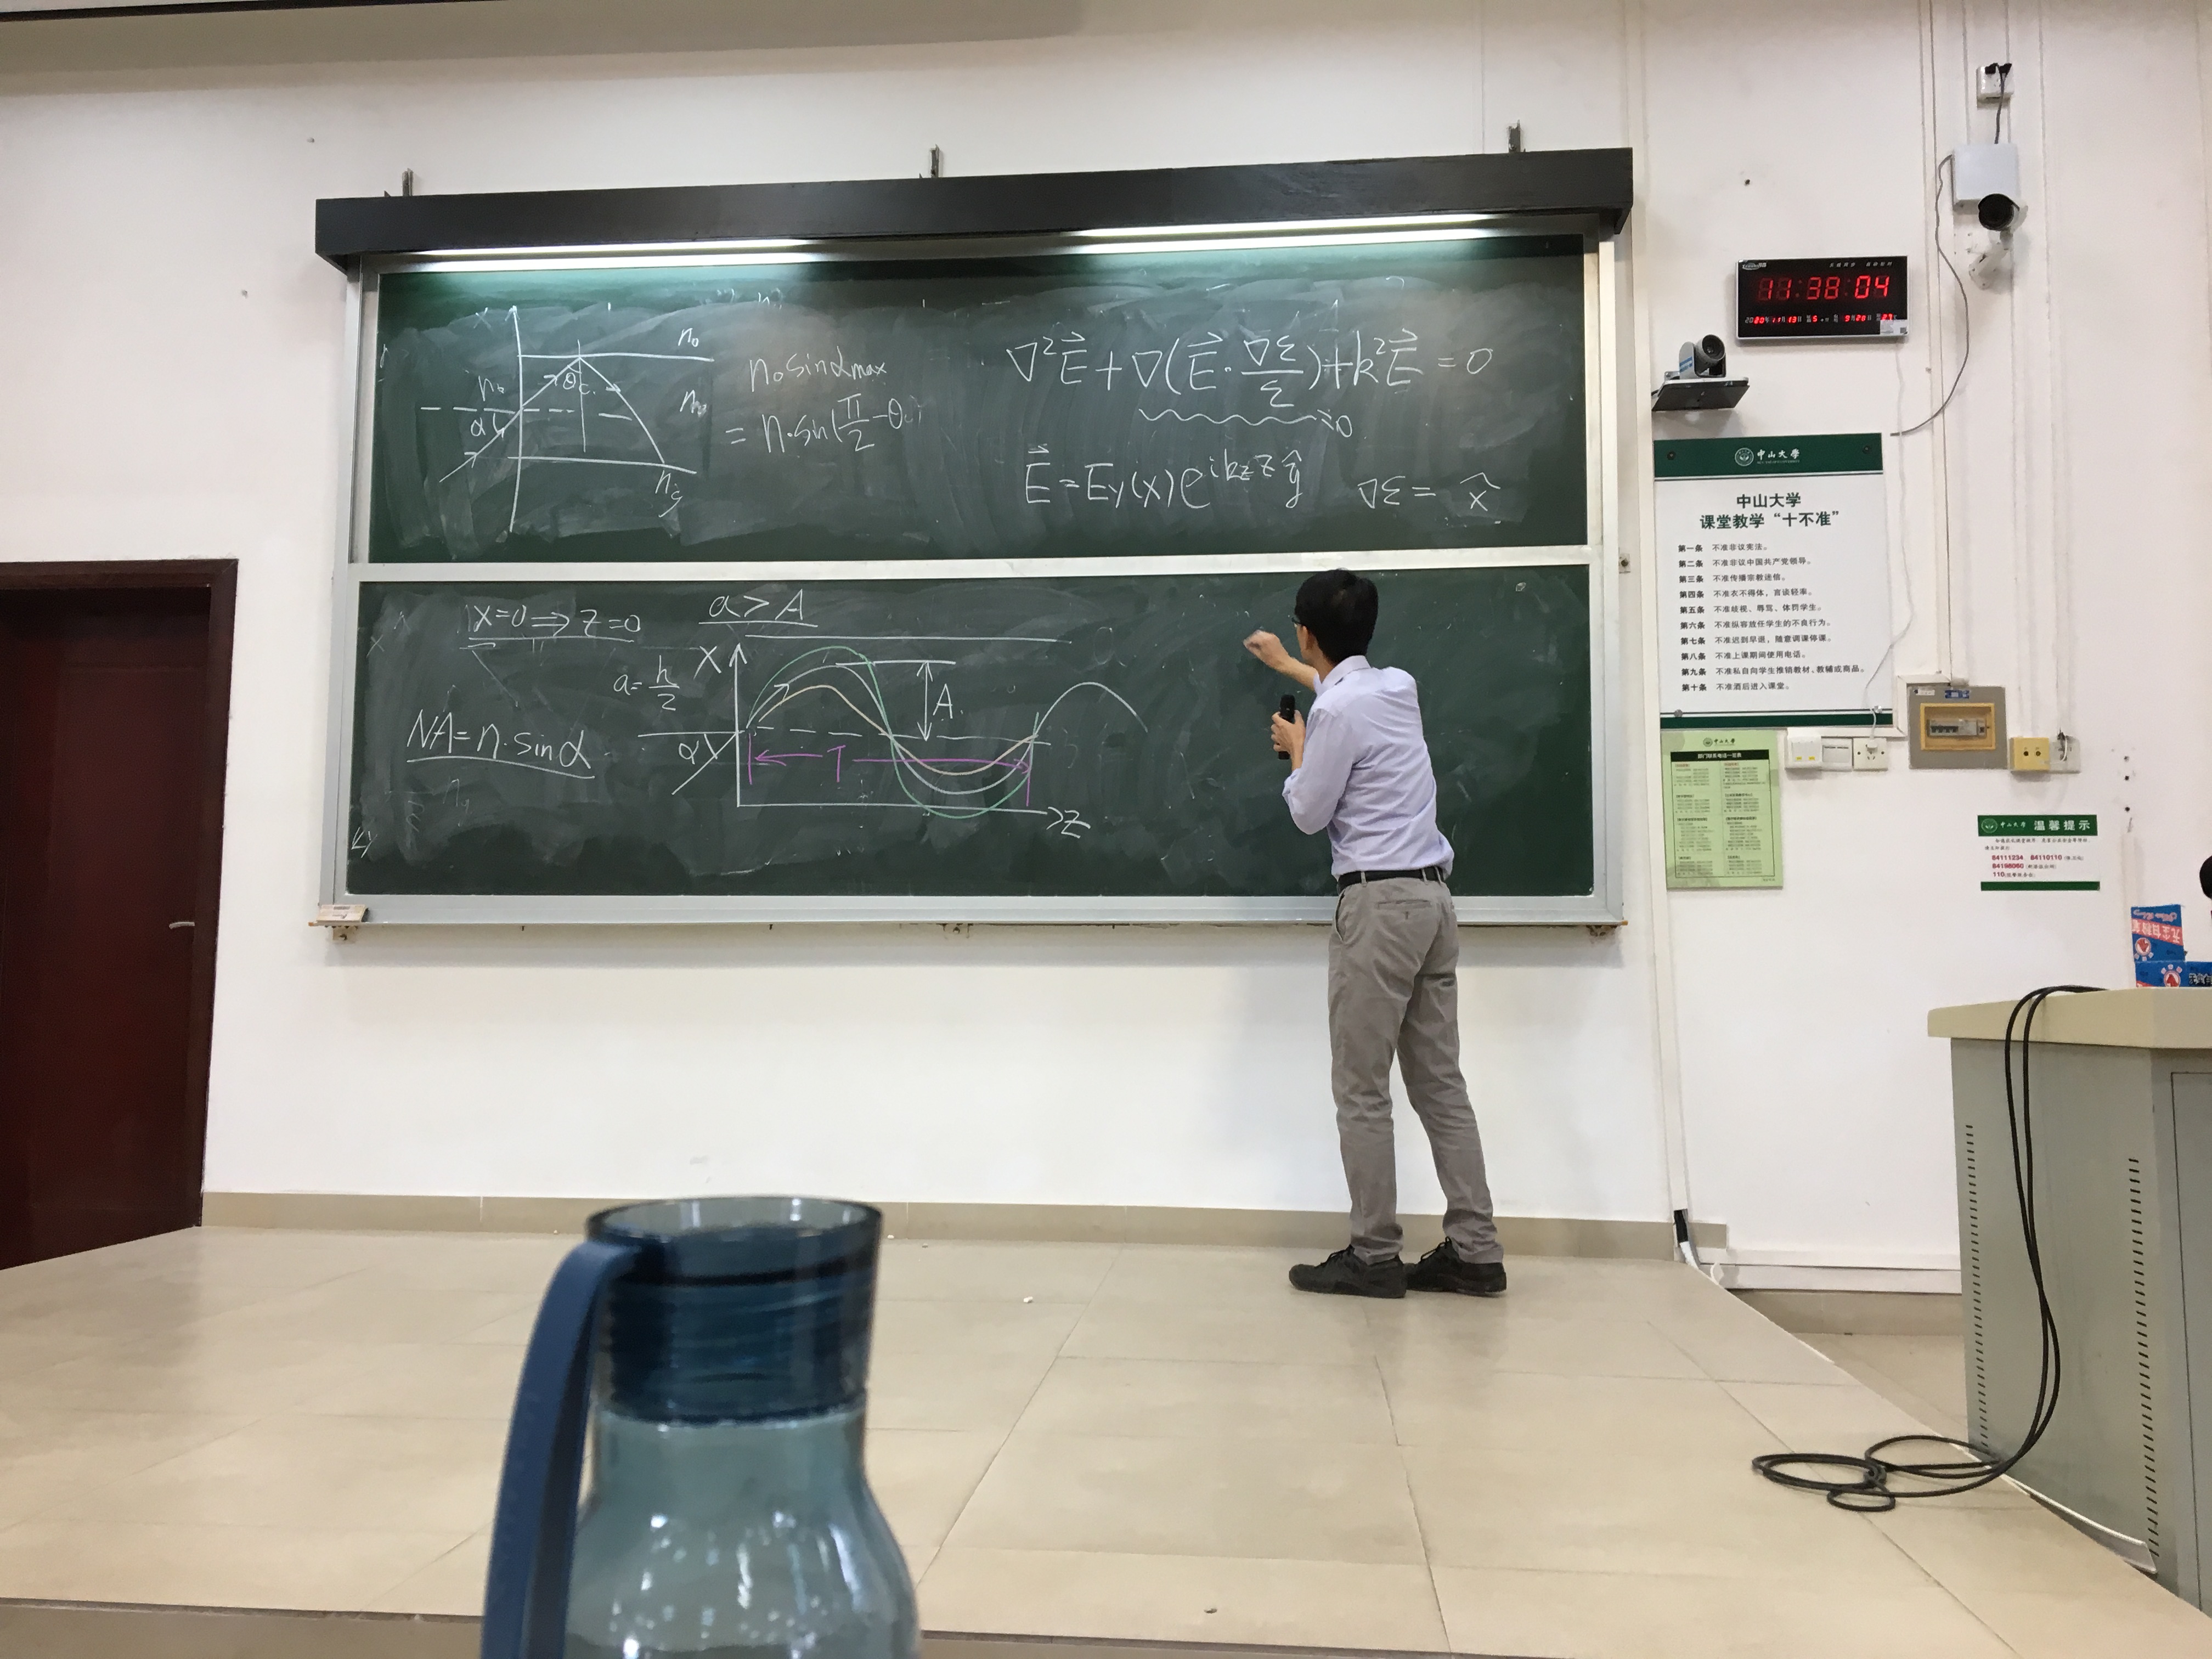 x
n₀
n₀
θc
α
n₀ sinα max
= n·sin(π/2 − θc)
∇²E⃗ + ∇(E⃗ · ∇ε/ε) + k²E⃗ = 0
E⃗ = Ey(x) e^{ikz z} ŷ
∇ε = x̂
x=0 ⇒ z=0
a > A
a = h/2
X
A
NA = n·sinα
α
T
z
11:38:04
中山大学
中山大学
课堂教学“十不准”
第一条 不准非议宪法。
第二条 不准非议中国共产党领导。
第三条 不准传播宗教迷信。
第四条 不准衣不得体，言谈轻率。
第五条 不准歧视、辱骂、体罚学生。
第六条 不准纵容放任学生的不良行为。
第七条 不准迟到早退，随意调课停课。
第八条 不准上课期间使用电话。
第九条 不准私自向学生推销教材、教辅或商品。
第十条 不准酒后进入课堂。
中山大学 温馨提示
84111234 84110110
84198060
110